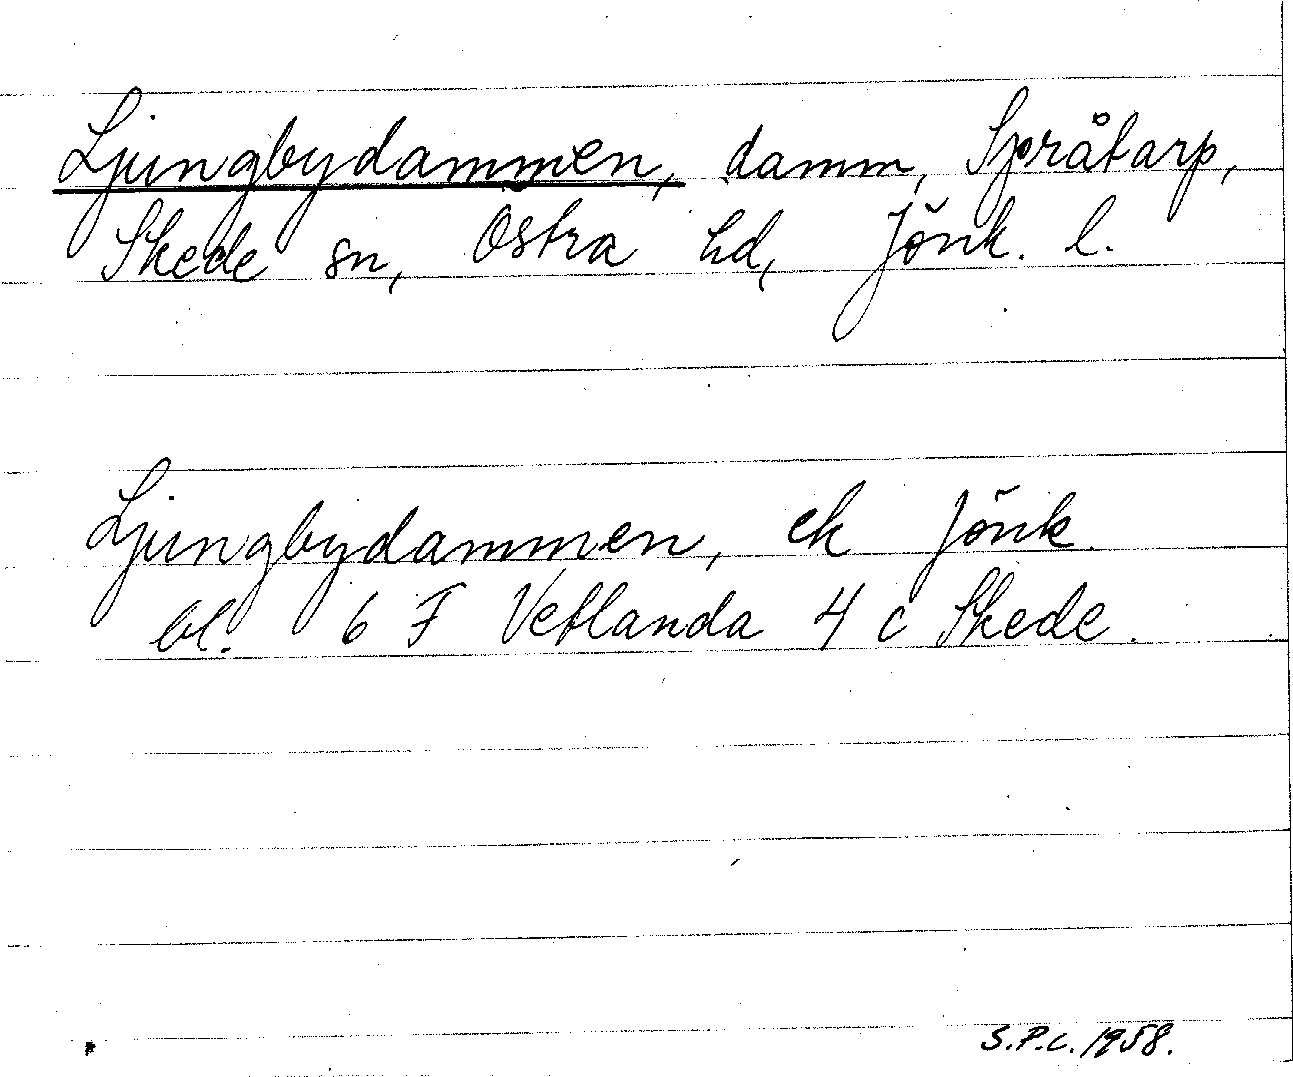 Ljungbydammen, damm, Språtarp,
Skede sn, Östra hd, Jönk. l.
Ljungbydammen, ek Jönk.
bl. 6 F Vetlanda 4 c Skede.
S.P.C. 1958.